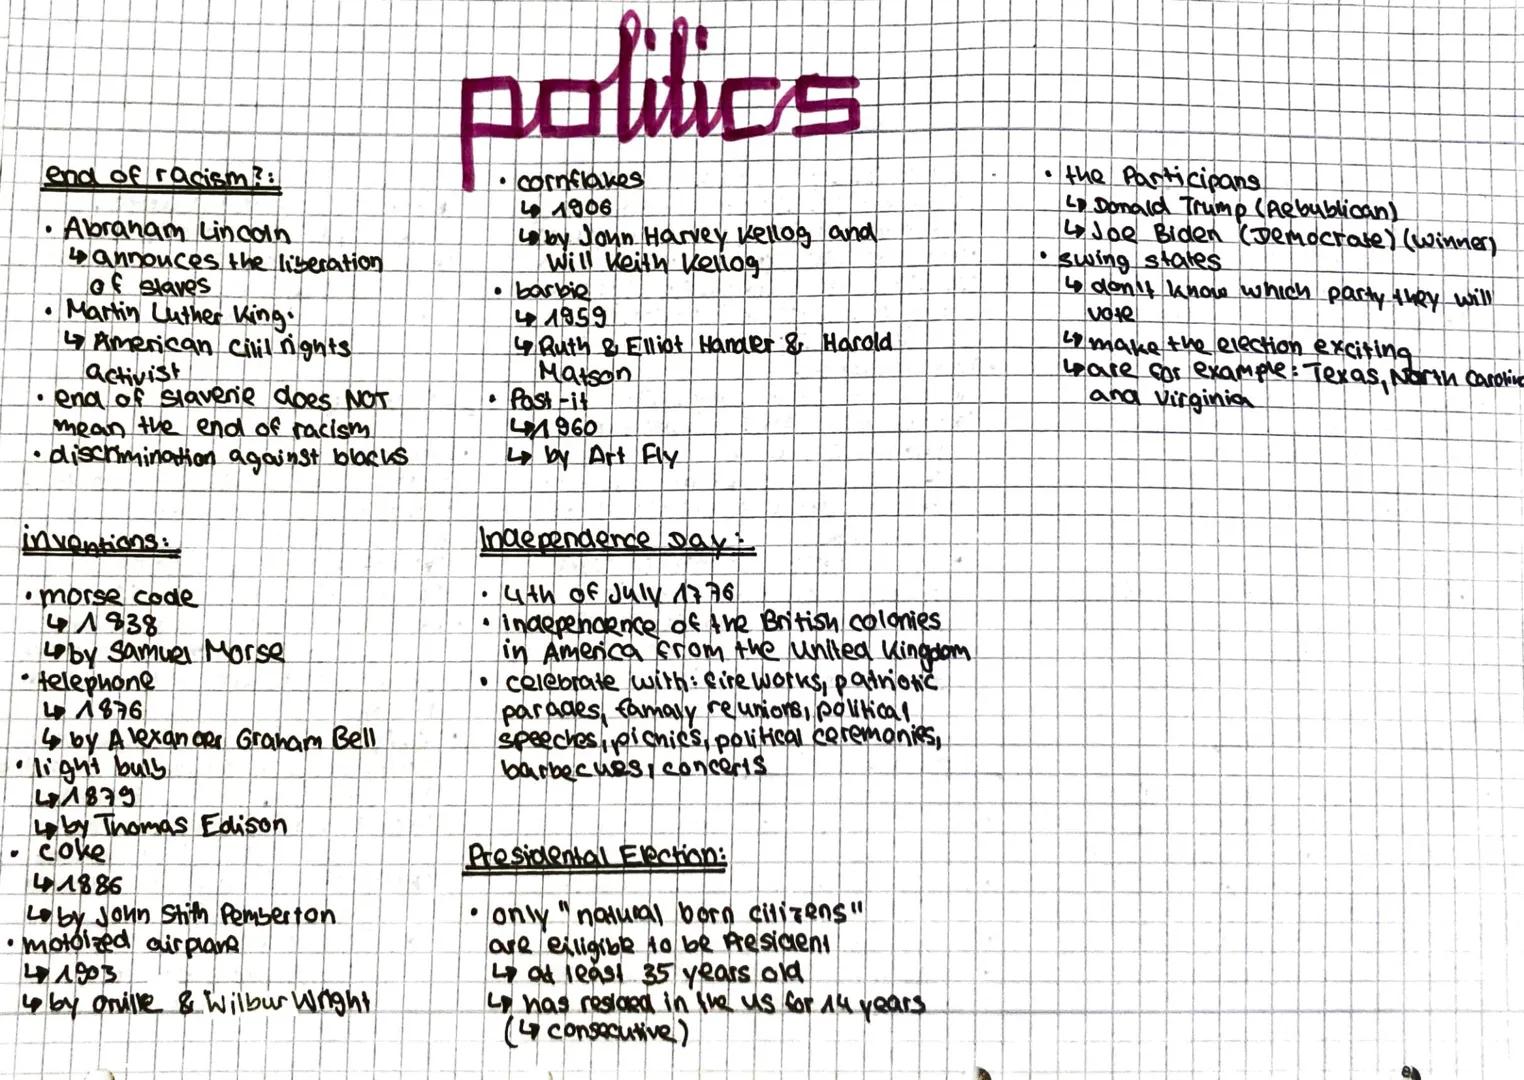 politics
end of racism?:
• Abraham Lincoln
↳ annouces the liberation
of slaves
• Martin Luther King:
↳ American cilil rights
activist
• end of slaverie does NOT
mean the end of racism
• discrimination against blacks
inventions:
• morse code
↳ 1838
↳ by Samuel Morse
• telephone
↳ 1876
↳ by Alexander Graham Bell
• light bulb
↳ 1879
↳ by Thomas Edison
• coke
↳ 1886
↳ by John Stith Pemberton
• motoized airplane
↳ 1903
↳ by Orville & Wilbur Wright
• cornflakes
↳ 1906
↳ by John Harvey Kellog and
Will Keith Kellog
• barbie
↳ 1959
↳ Ruth & Elliot Handler & Harold
Matson
• Post-it
↳ 1960
↳ by Art Fly
Independence Day:
• 4th of July 1776
• independence of the British colonies
in America from the United Kingdom
• celebrate with: fireworks, patriotic
parades, famaly reunions, political
speeches, picnics, political ceremonies,
barbecues, concerts
Presidental Election:
• only "natural born citizens"
are eiligible to be President
↳ at least 35 years old
↳ has resided in the US for 14 years
(↳ consecutive)
• the Participans
↳ Donald Trump (Rebublican)
↳ Joe Biden (Democrate) (winner)
• swing states
↳ don't know which party they will
vote
↳ make the election exciting
↳ are for example: Texas, North Carolina
and Virginia